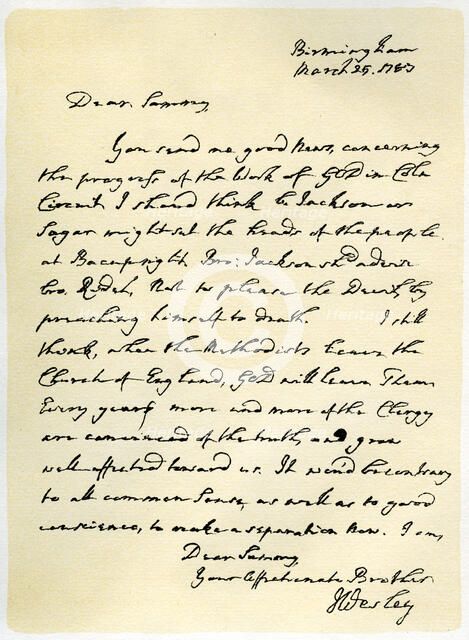 Birmingham
March 25. 1783
Dear Sammy,
You send me good News, concerning
the progress of the Work of GOD in Coln
Circuit. I should think Br. Jackson or
Sagar might set the heads of the people
at Bacup right. Bro: Jackson shd. advise
bro. Ridel, Not to please the Devil, by
preaching himself to death. I still
think, when the Methodists leave the
Church of England, GOD will leave Them.
Every year more and more of the Clergy
are convinced of the truth, and grow
well-affected toward us. It wou'd be contrary
to all common Sense, as well as to good
conscience, to make a separation Now. I am,
Dear Sammy,
Your Affectionate Brother
JWesley